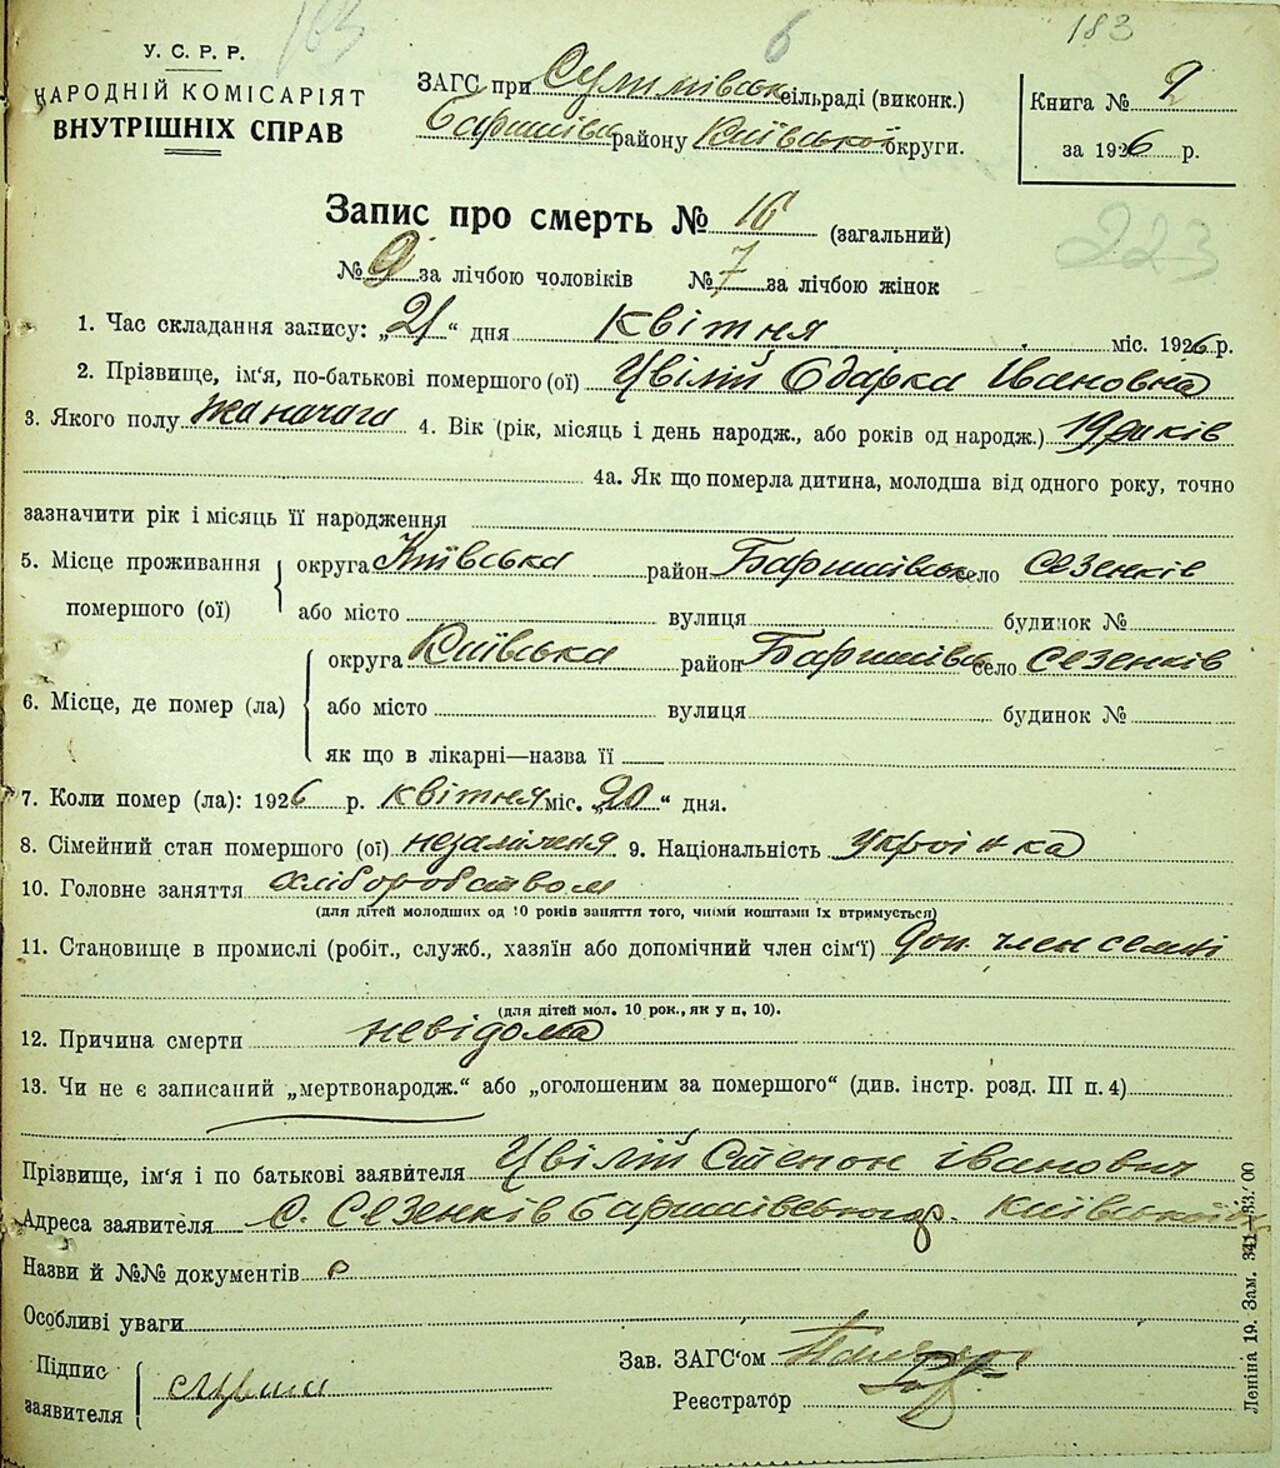 183
6
183
У. С. Р. Р.
НАРОДНІЙ КОМІСАРІЯТ
ВНУТРІШНІХ СПРАВ
ЗАГС при Сулимівськ сільраді (виконк.)
Баришівськ району Київської округи.
Книга № 2
за 1926 р.
Запис про смерть № 16 (загальний)
223
№ 9 за лічбою чоловіків № 7 за лічбою жінок
1. Час складання запису: „21“ дня квітня міс. 1926 р.
2. Прізвище, ім‘я, по-батькові помершого (ої) Цвілій Одарка Івановна
3. Якого полу 4. Вік (рік, місяць і день народж., або років од народж.) 19 років
4а. Як що померла дитина, молодша від одного року, точно
зазначити рік і місяць її народження
5. Місце проживання помершого (ої) округа Київська район Баришівськ село Сезенків
або місто вулиця будинок №
6. Місце, де помер (ла) округа Київська район Баришівськ село Сезенків
або місто вулиця будинок №
як що в лікарні—назва її
7. Коли помер (ла): 1926 р. квітня міс. „20“ дня.
8. Сімейний стан помершого (ої) 9. Національність Українка
10. Головне заняття хліборобством
(для дітей молодших од 10 років заняття того, чиїми коштами їх втримується)
11. Становище в промислі (робіт., служб., хазяїн або допомічний член сім‘ї) Доп. член семні
(для дітей мол. 10 рок., як у п. 10).
12. Причина смерти невідома
13. Чи не є записаний „мертвонародж.“ або „оголошеним за помершого“ (див. інстр. розд. III п. 4)
Прізвище, ім‘я і по батькові заявителя Цвілій Степон Іванович
Адреса заявителя С. Сезенків Київської
Назви й №№ документів
Особливі уваги
Підпис заявителя
Зав. ЗАГС‘ом
Реєстратор
Леніна 19. Зам.